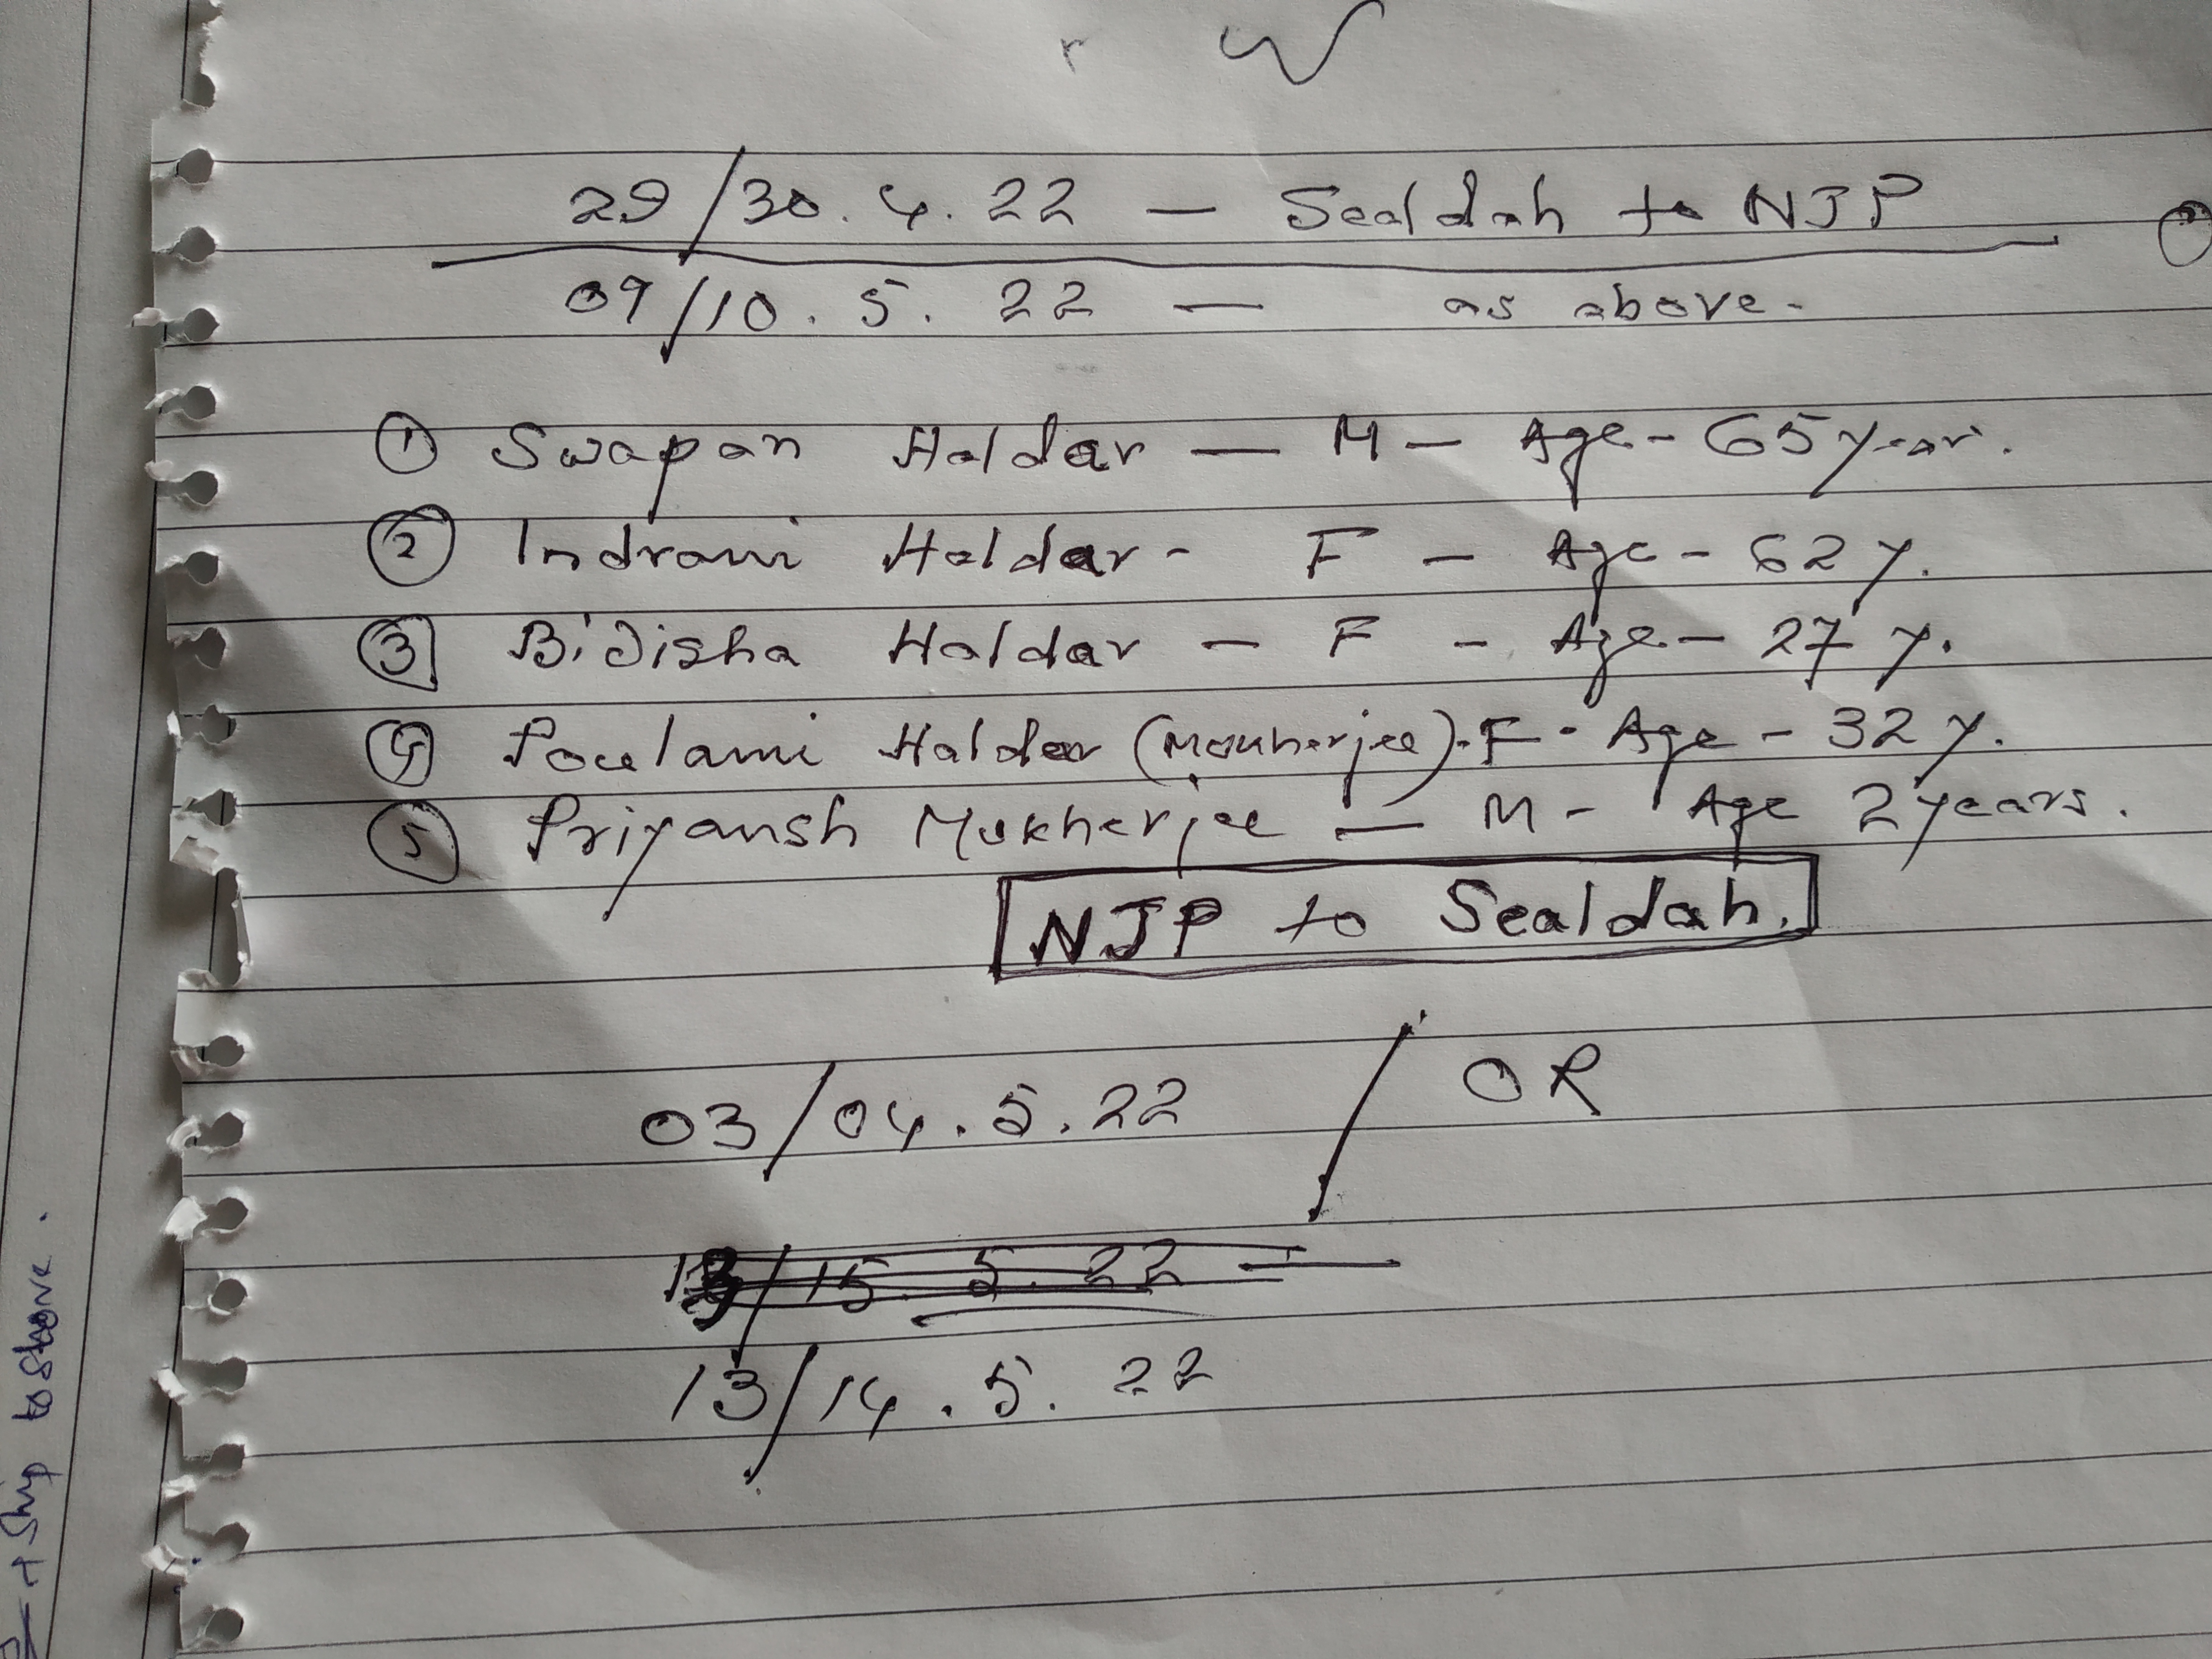 + Ship to Shore.
29/30.4.22 — Sealdah to NJP
09/10.5.22 — as above.
① Swapan Haldar — M - Age - 65 year.
② Indrani Haldar - F - Age - 62 y.
③ Bidisha Haldar - F - Age - 27 y.
④ Poulami Haldar (Mukherjee). F - Age - 32 y.
⑤ Priyansh Mukherjee — M - Age 2 years.
NJP to Sealdah.
03/04.5.22 / OR
13/14.5.22